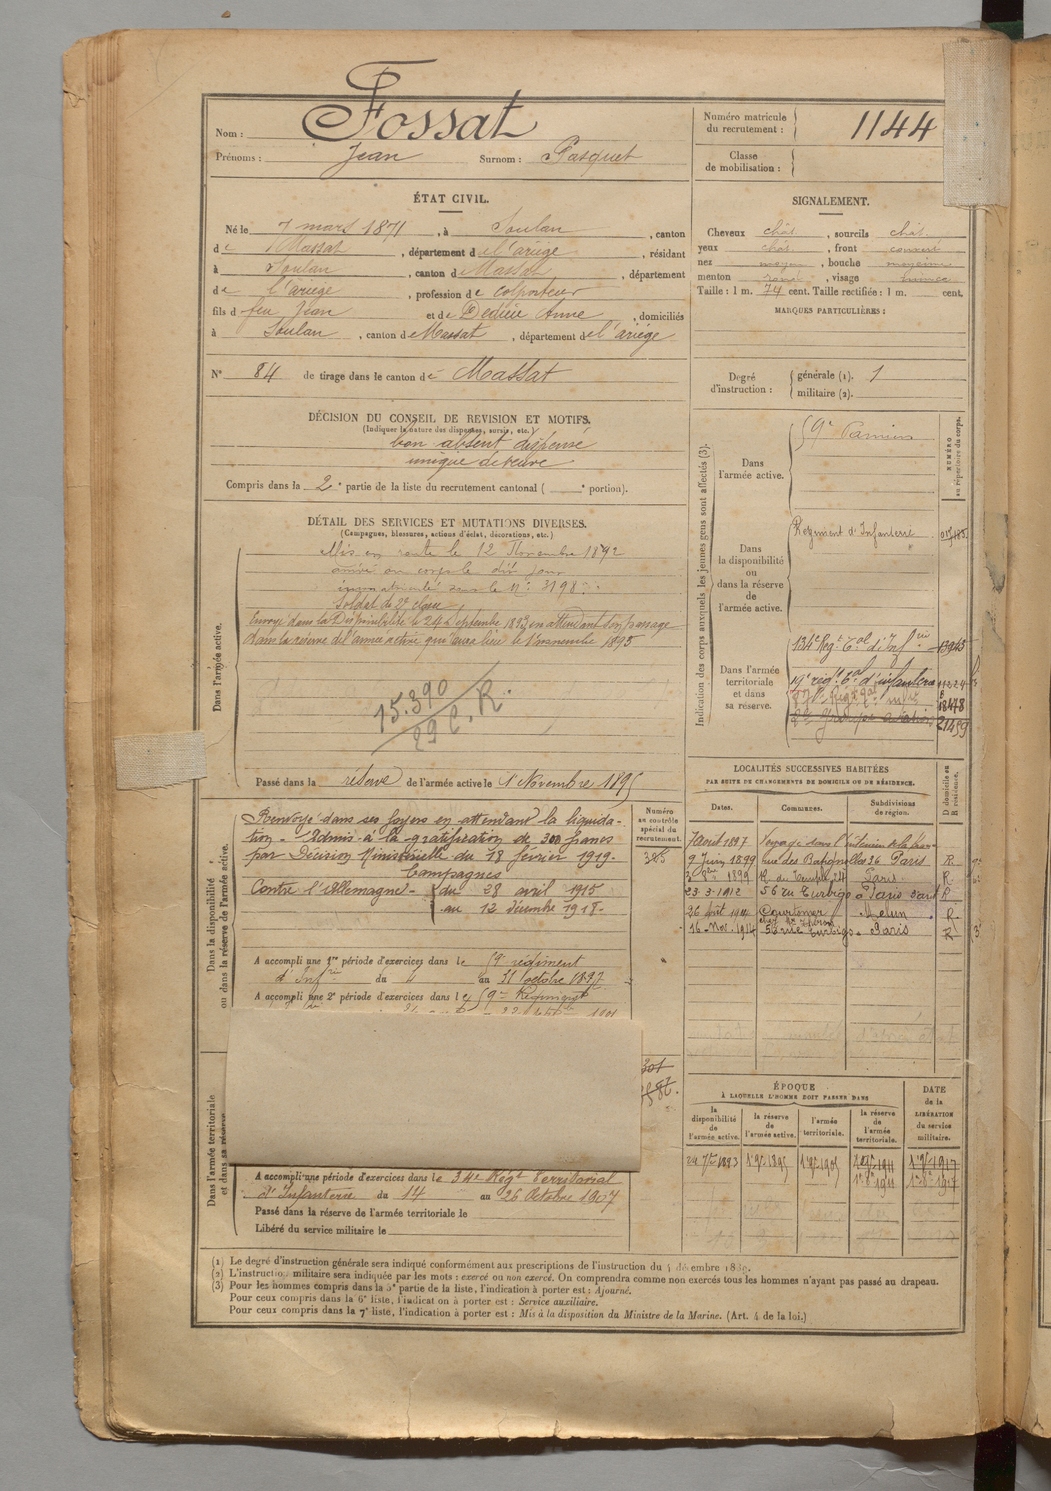 Nom : Fossat
Prénoms : Jean Surnom : Pasquet
Numéro matricule du recrutement : 1144
Classe de mobilisation :
ÉTAT CIVIL.
Né le 7 mars 1871, à Soulan, canton
de Massat, département de l'ariège, résidant
à Soulan, canton de Massat, département
de l'ariège, profession de colporteur
fils d feu Jean et de Dedieu Anne, domiciliés
à Soulan, canton de Massat, département de l'ariége
N° 84 de tirage dans le canton de Massat
SIGNALEMENT.
Cheveux chât., sourcils chât.
yeux chât., front couvert
nez moyen, bouche moyenne
menton rond, visage
Taille : 1 m. 74 cent. Taille rectifiée : 1 m. cent.
MARQUES PARTICULIÈRES :
Degré d'instruction : générale (1). 1
militaire (2).
DÉCISION DU CONSEIL DE REVISION ET MOTIFS.
(Indiquer la nature des dispenses, sursis, etc.)
bon absent dispensé
unique de veuve
Compris dans la 2e partie de la liste du recrutement cantonal ( e portion).
DÉTAIL DES SERVICES ET MUTATIONS DIVERSES.
(Campagnes, blessures, actions d'éclat, décorations, etc.)
Dans l'armée active.
Mis en route le 12 Novembre 1892
arrivé au corps le dit jour
immatriculé sous le n°: 3198
Soldat de 2e classe
Envoyé dans la Disponibilité le 24 Septembre 1893 en attendant son passage
dans la réserve de l'armée active qui aura lieu le 1er novembre 1895
15.390
29 C. R.
Passé dans la réserve de l'armée active le 1er Novembre 1895
Dans la disponibilité ou dans la réserve de l'armée active.
Renvoyé dans ses foyers en attendant la liquida-
tion - Admis à la gratification de 300 francs
par Décision Ministérielle du 18 février 1919.
Campagnes
Contre l'Allemagne - du 28 avril 1915
au 12 décembre 1918.
A accompli une 1re période d'exercices dans le 59e régiment
d'Infrie du 4 au 31 octobre 1897
A accompli une 2e période d'exercices dans le 59e Régiment
Numéro au contrôle spécial du recrutement.
385
301
Dans l'armée territoriale et dans sa réserve
A accompli une période d'exercices dans le 34e Régt Territorial
d'Infanterie du 14 au 26 Octobre 1907
Passé dans la réserve de l'armée territoriale le
Libéré du service militaire le
Indication des corps auxquels les jeunes gens sont affectés (3).
NUMÉRO au répertoire du corps.
Dans l'armée active.
59e Pamiers
Dans la disponibilité ou dans la réserve de l'armée active.
Régiment d'Infanterie
Dans l'armée territoriale et dans sa réserve.
134e Régt Tal d'Infrie 13945
19e régt Tal d'infanterie
18478
21459
LOCALITÉS SUCCESSIVES HABITÉES
PAR SUITE DE CHANGEMENTS DE DOMICILE OU DE RÉSIDENCE.
Dates. Communes. Subdivisions de région. D domicile ou R résidence.
7 août 1897 Voyage dans l'intérieur de la
9 Juin 1899 rue des Batignolles 36 Paris R.
1899 R. du Temple 24 Paris R.
23-3-1912 56 rue Turbigo Paris R
26 août 1914 Courtomer Melun R.
16-Nov. 1914 56 rue Turbigo Paris R
ÉPOQUE
À LAQUELLE L'HOMME DOIT PASSER DANS
la disponibilité de l'armée active. la réserve de l'armée active. l'armée territoriale. la réserve de l'armée territoriale. DATE de la LIBÉRATION du service militaire.
24 7bre 1893 1er 9bre 1895 1er 9bre 1905 1911 1917
1er 8bre 1911 1er 8bre 1917
(1) Le degré d'instruction générale sera indiqué conformément aux prescriptions de l'instruction du 4 décembre 1889.
(2) L'instruction militaire sera indiquée par les mots : exercé ou non exercé. On comprendra comme non exercés tous les hommes n'ayant pas passé au drapeau.
(3) Pour les hommes compris dans la 5e partie de la liste, l'indication à porter est : Ajourné.
Pour ceux compris dans la 6e liste, l'indication à porter est : Service auxiliaire.
Pour ceux compris dans la 7e liste, l'indication à porter est : Mis à la disposition du Ministre de la Marine. (Art. 4 de la loi.)